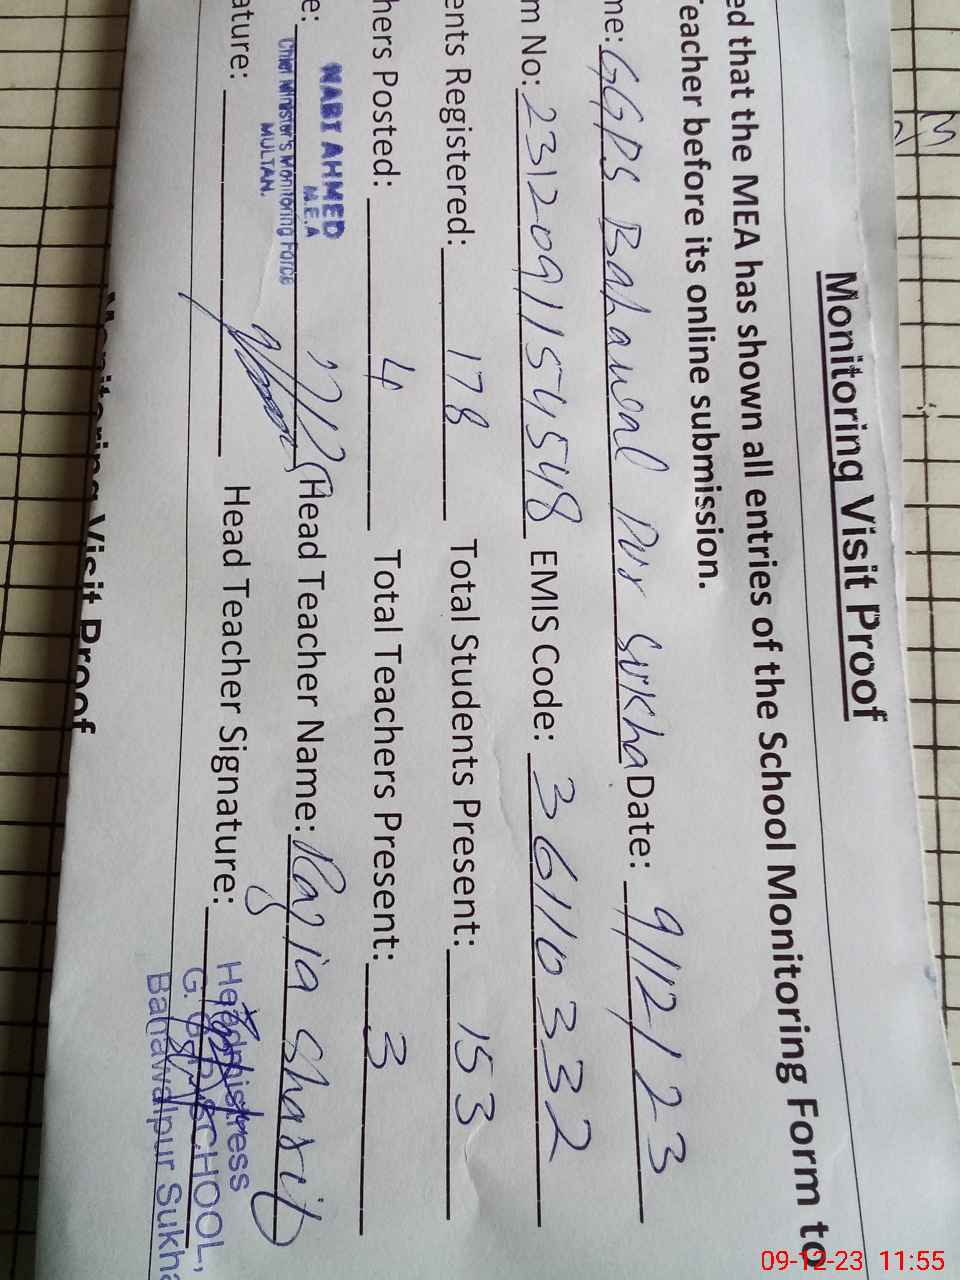 Monitoring Visit Proof
ed that the MEA has shown all entries of the School Monitoring Form to
Teacher before its online submission.
me: GGPS Bahawal Pur Sukha Date: 9/12/23
m No: 2312091154548 EMIS Code: 36110332
ents Registered: 178 Total Students Present: 153
hers Posted: 4 Total Teachers Present: 3
e: Head Teacher Name: Razia Sharif
NABI AHMED
M.E.A
Chief Minister's Monitoring Force
MULTAN.
ature: Head Teacher Signature:
Headmistress
G. SCHOOL,
Bahawalpur Sukha
Monitoring Visit Proof
M
09-12-23 11:55